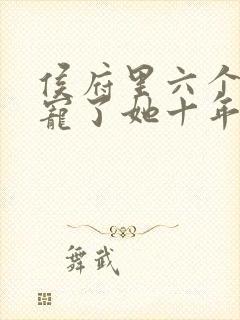 侯府里六个
宠了她十年
舞武